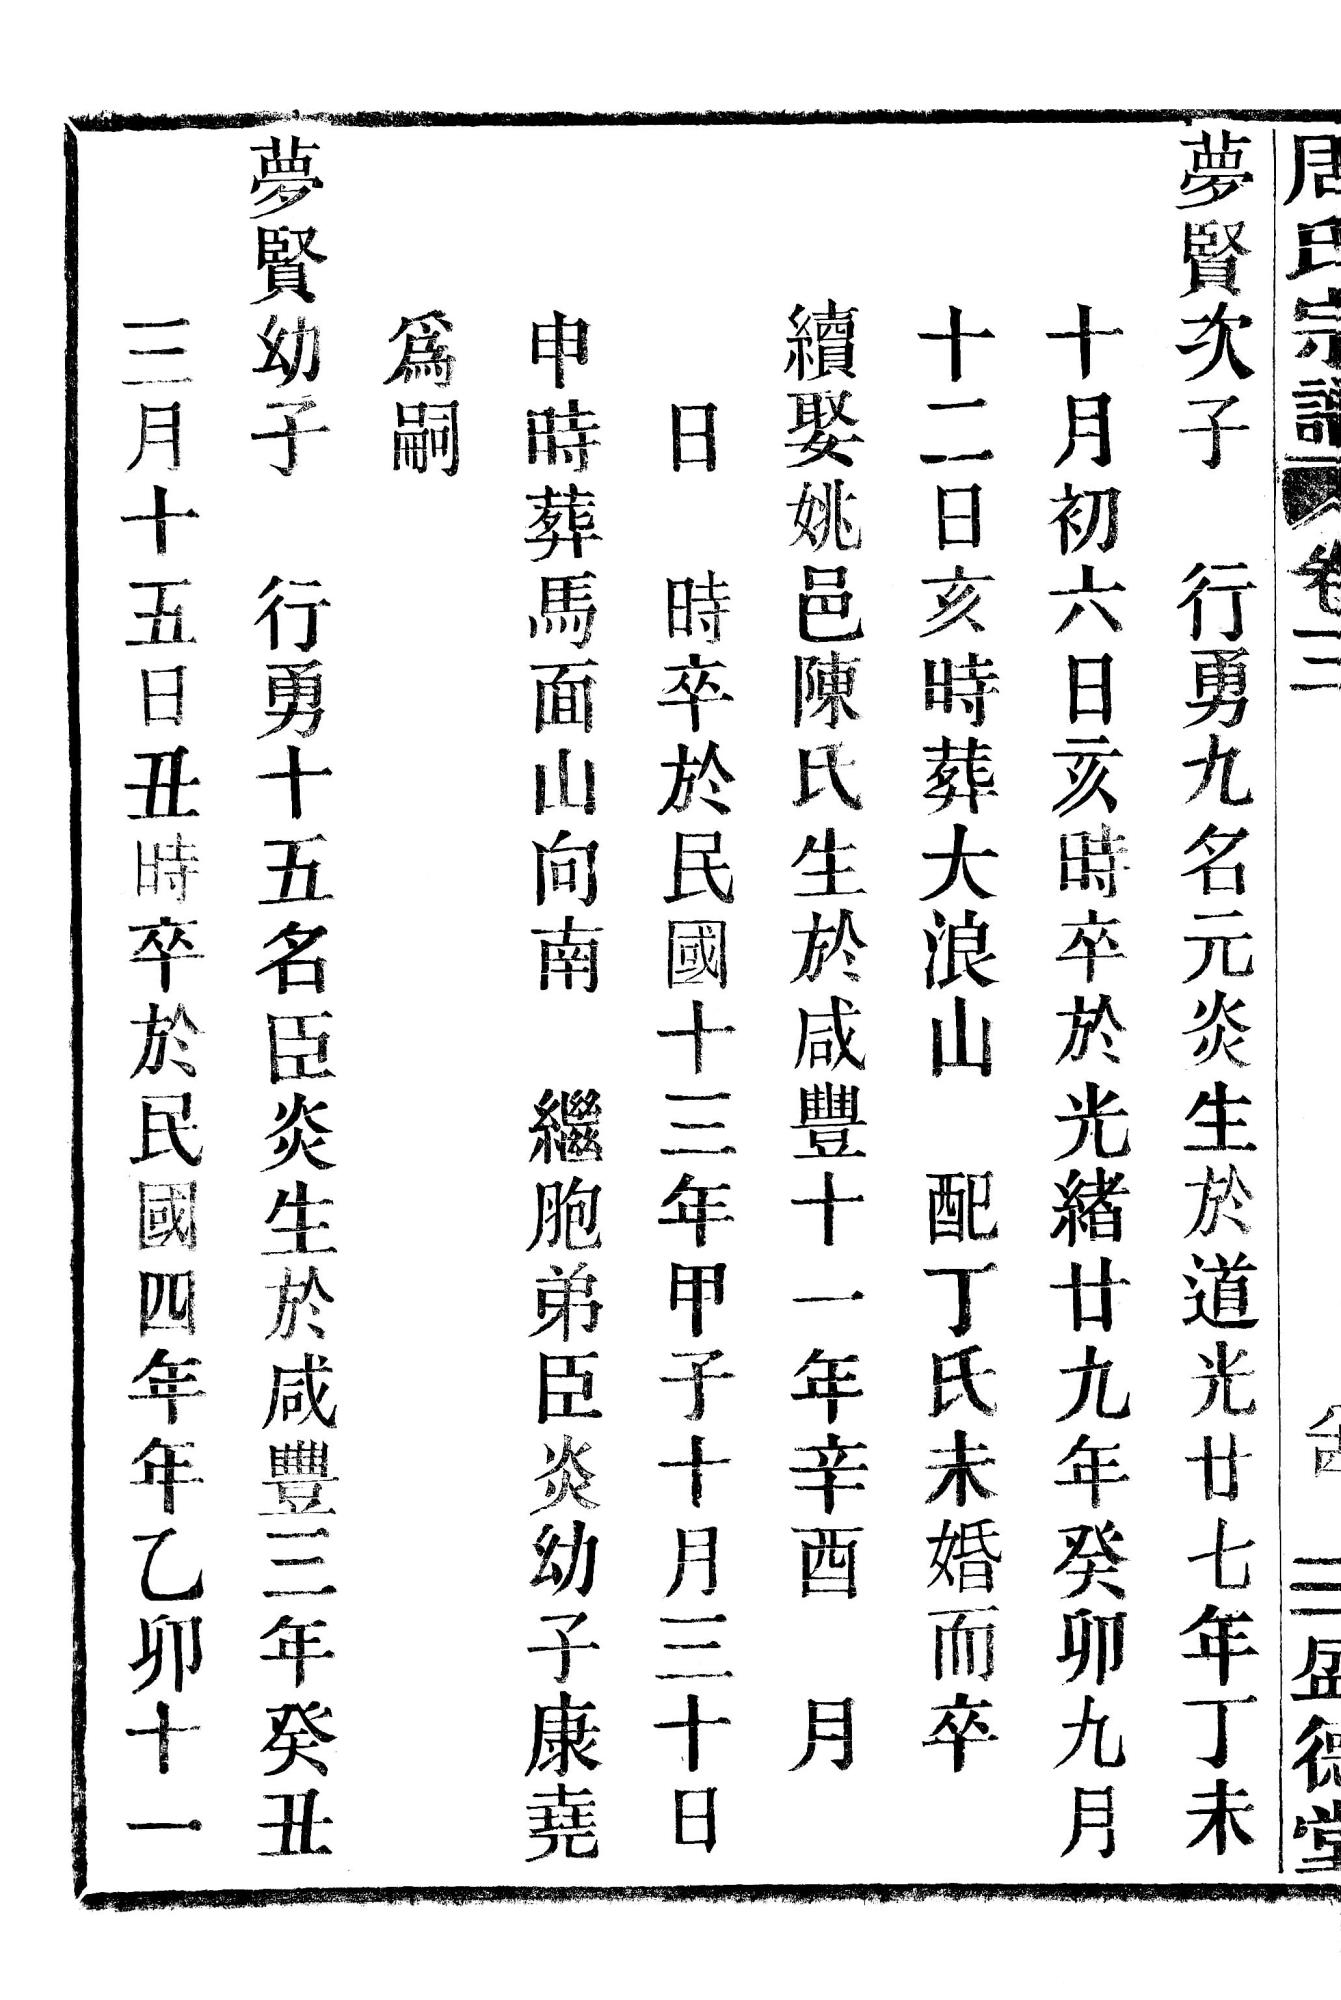 周氏宗譜 卷三 三盛德堂
夢賢次子 行勇九名元炎生於道光廿七年丁未
十月初六日亥時卒於光緒廿九年癸卯九月
十二日亥時葬大浪山 配丁氏未婚而卒
續娶姚邑陳氏生於咸豐十一年辛酉 月
日 時卒於民國十三年甲子十月三十日
申時葬馬面山向南 繼胞弟臣炎幼子康堯
爲嗣
夢賢幼子 行勇十五名臣炎生於咸豐三年癸丑
三月十五日丑時卒於民國四年年乙卯十一